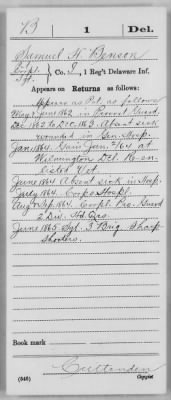 B | 1 | Del.
Samuel H. Benson
Corpl. Sgt., Co. I, 1 Reg't Delaware Inf.
Appears on Returns as follows:
Appears as Pvt. as follows
May & June 1862 in Provost Guard.
Dec. 1862 to Dec. 1863. Absent sick
wounded in Gen. Hosp.
Jan. 1864. Gain Jan. 2/64 at
Wilmington Del. Reen-
listed Vet.
June 1864 Absent sick in Hosp.
July 1864. Corps Hospl.
Aug & Sep. 1864. Corpl. Pro. Guard
2 Div. Hd. Qrs.
June 1865. Sgt. 3 Brig. Sharp
Shooters.
Book mark
Cullenden
(546) Copyist